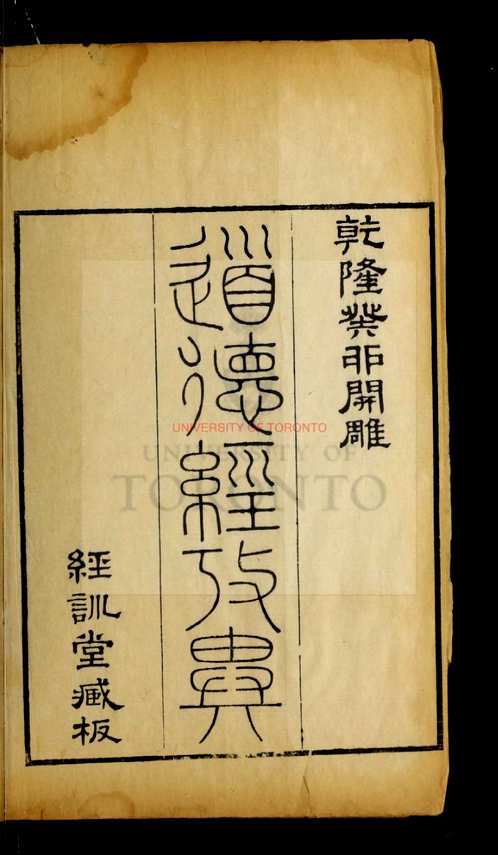 乾隆癸卯開雕
道德經攷異
經訓堂藏板
UNIVERSITY OF TORONTO
UNIVERSITY OF
TORONTO